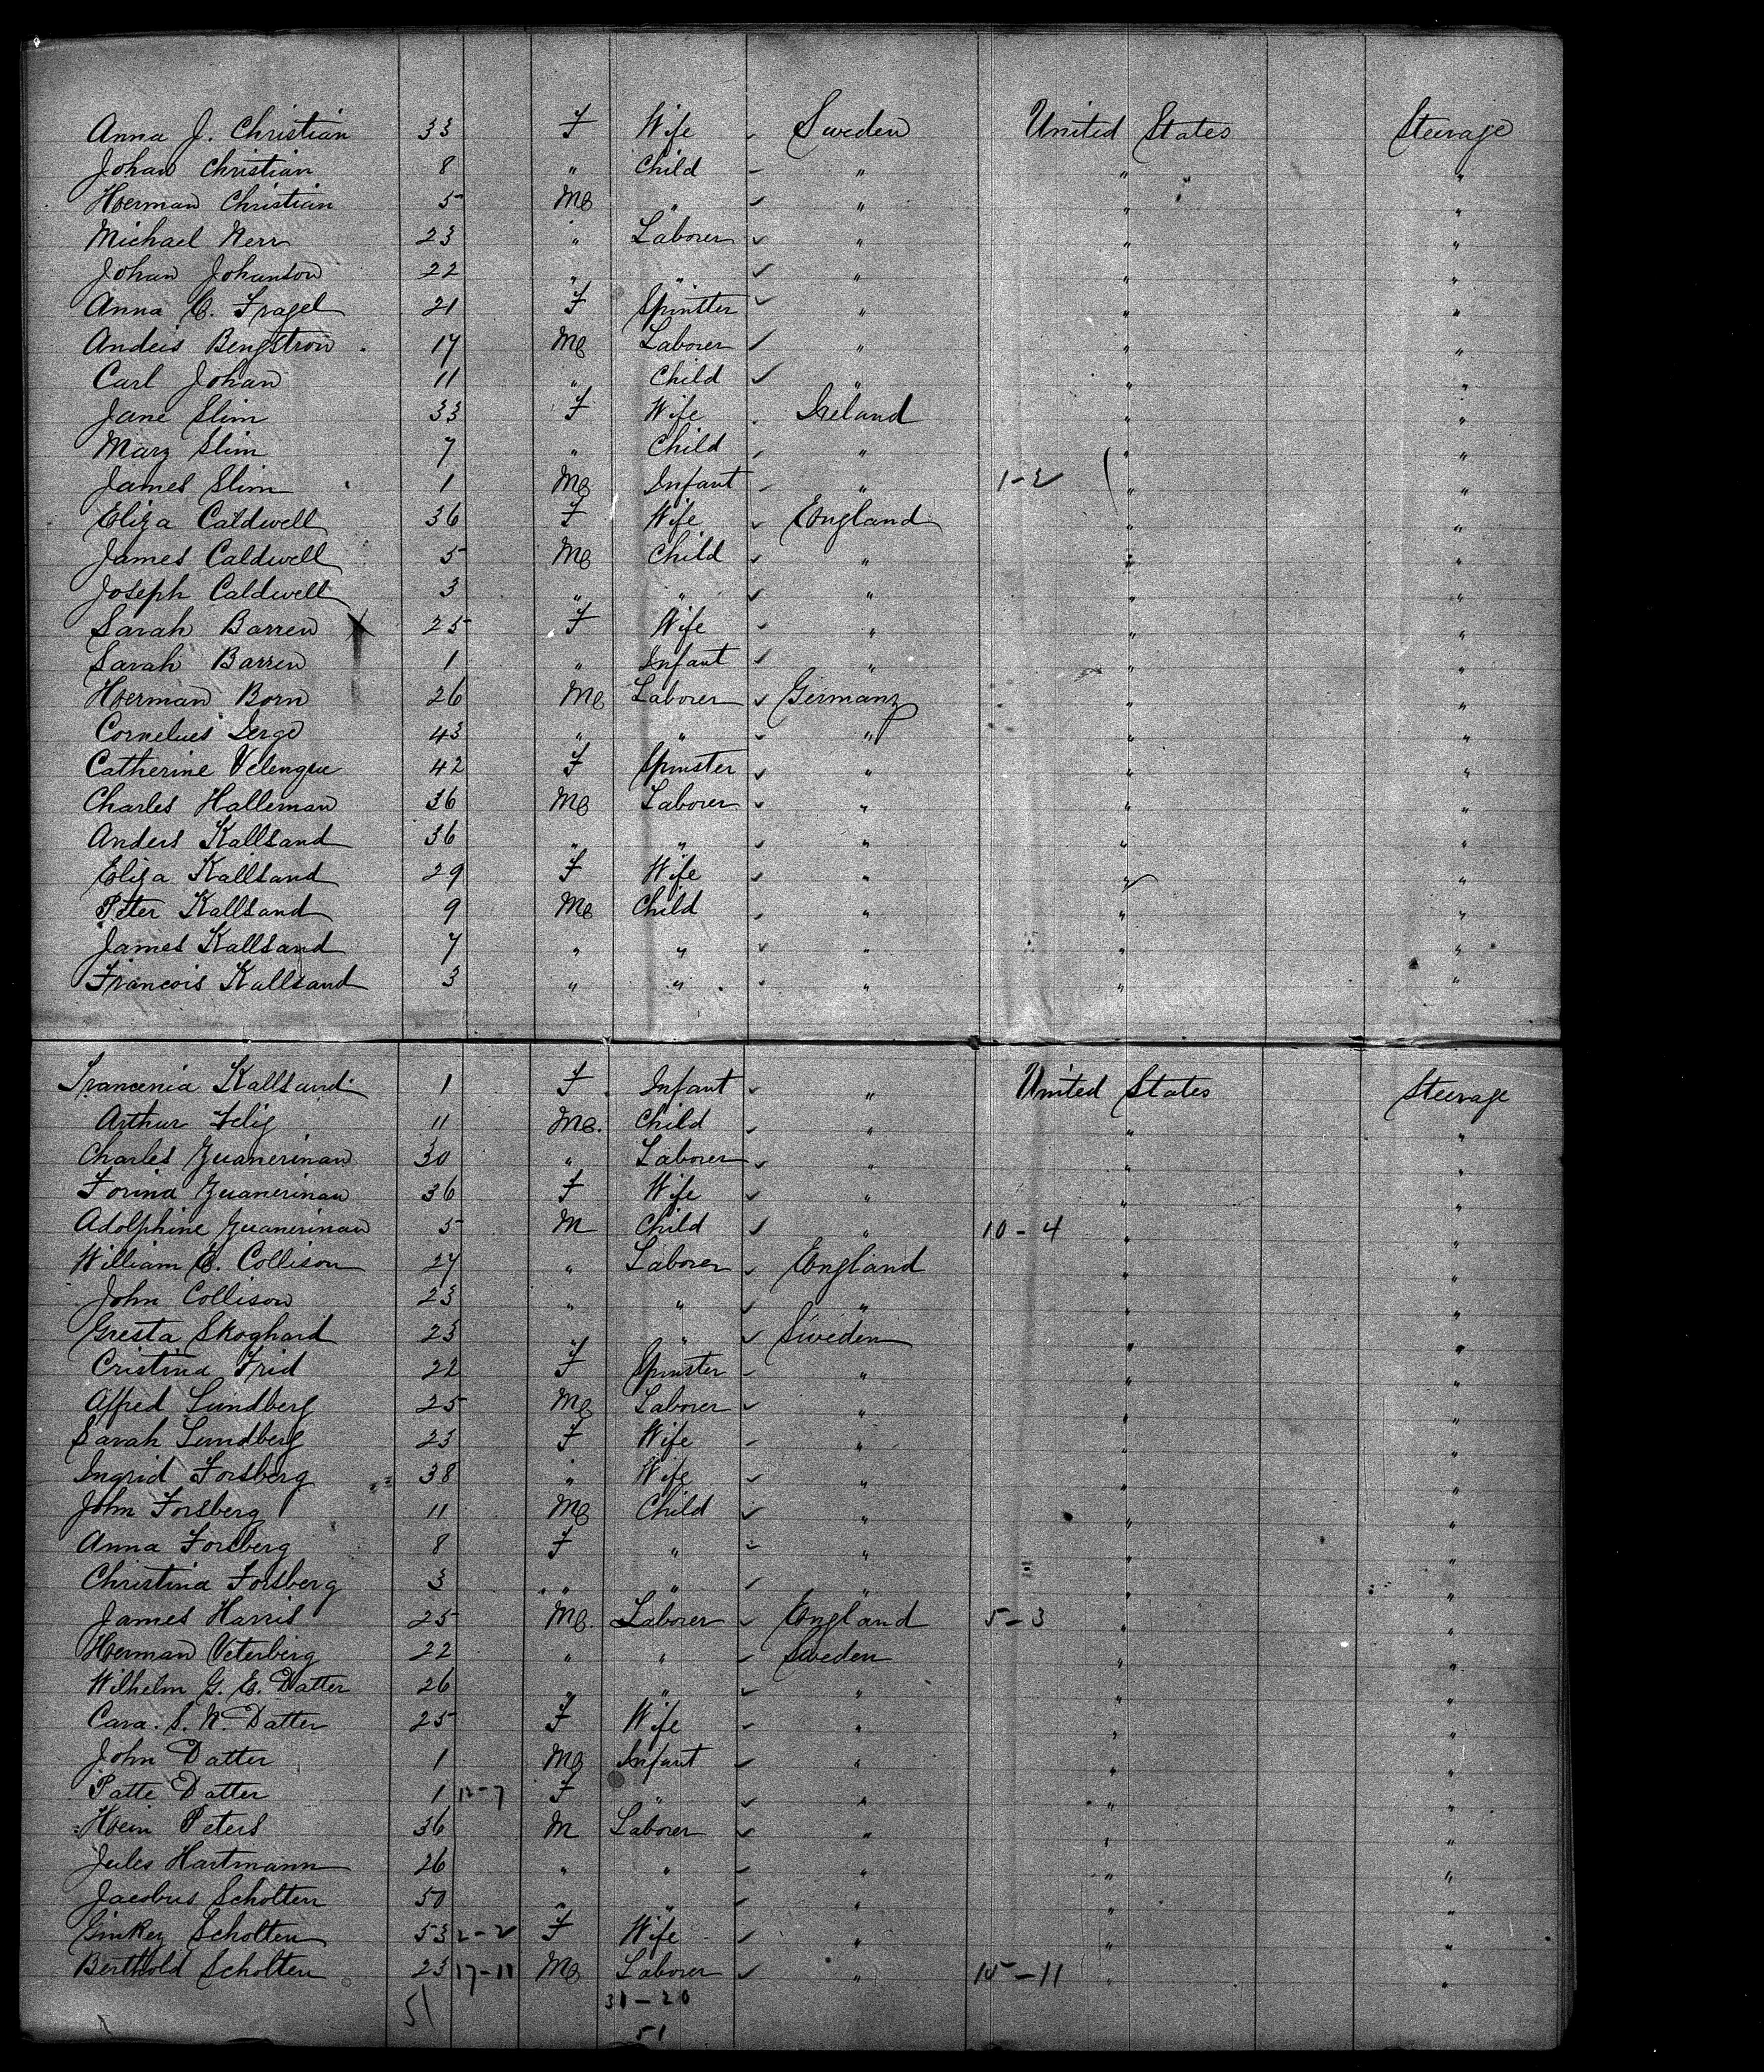 Anna J. Christian 33 F Wife Sweden United States Steerage
Johan Christian 8 " Child " " "
Herman Christian 5 M " " " "
Michael Nerr 23 " Laborer " " "
Johan Johanson 22 " " " " "
Anna C. Fragel 21 F Spinster " " "
Andeis Bengstrow 17 M Laborer " " "
Carl Johan 11 " Child " " "
Jane Slim 33 F Wife Ireland " "
Mary Slim 7 " Child " " "
James Slim 1 M Infant " 1-2 " "
Eliza Caldwell 36 F Wife England " "
James Caldwell 5 M Child " " "
Joseph Caldwell 3 " " " " "
Sarah Barren X 25 F Wife " " "
Sarah Barren 1 " Infant " " "
Herman Born 26 M Laborer Germany " "
Cornelues Serge 43 " " " " "
Catherine Velengue 42 F Spinster " " "
Charles Halleman 36 M Laborer " " "
Anders Kallsand 36 " " " " "
Eliza Kallsand 29 F Wife " " "
Peter Kallsand 9 M Child " " "
James Kallsand 7 " " " " "
Francois Kallsand 3 " " " " "
Francenia Kallsand 1 F Infant " United States Steerage
Arthur Felig 11 M. Child " " "
Charles Zuanerinan 30 " Laborer " " "
Forina Zuanerinan 36 F Wife " " "
Adolphine Zuanerinan 5 M Child " 10-4 " "
William C. Collison 27 " Laborer England " "
John Collison 23 " " " " "
Gresta Skoghard 23 " Sweden " "
Cristina Frid 22 F Spinster " " "
Alfred Lundberg 25 M Laborer " " "
Sarah Lundberg 23 F Wife " " "
Ingrid Forsberg 38 " Wife " " "
John Forsberg 11 M Child " " "
Anna Forsberg 8 F " " " "
Christina Forsberg 3 " " " " "
James Harris 25 M. Laborer England 5-3 " "
Herman Veterberg 22 " " Sweden " "
Wilhelm G. E. Datter 26 " " " " "
Cara. S. N. Datter 25 F Wife " " "
John Datter 1 M Infant " " "
Patte Datter 1 12-7 F " " " "
Hein Peters 36 M Laborer " " "
Jules Hartmann 26 " " " " "
Jacobus Scholten 50 " " " " "
Ginkey Scholten 53 2-2 F Wife " " "
Berthold Scholten 23 17-11 M Laborer " 15-11 " "
51 31-20
51